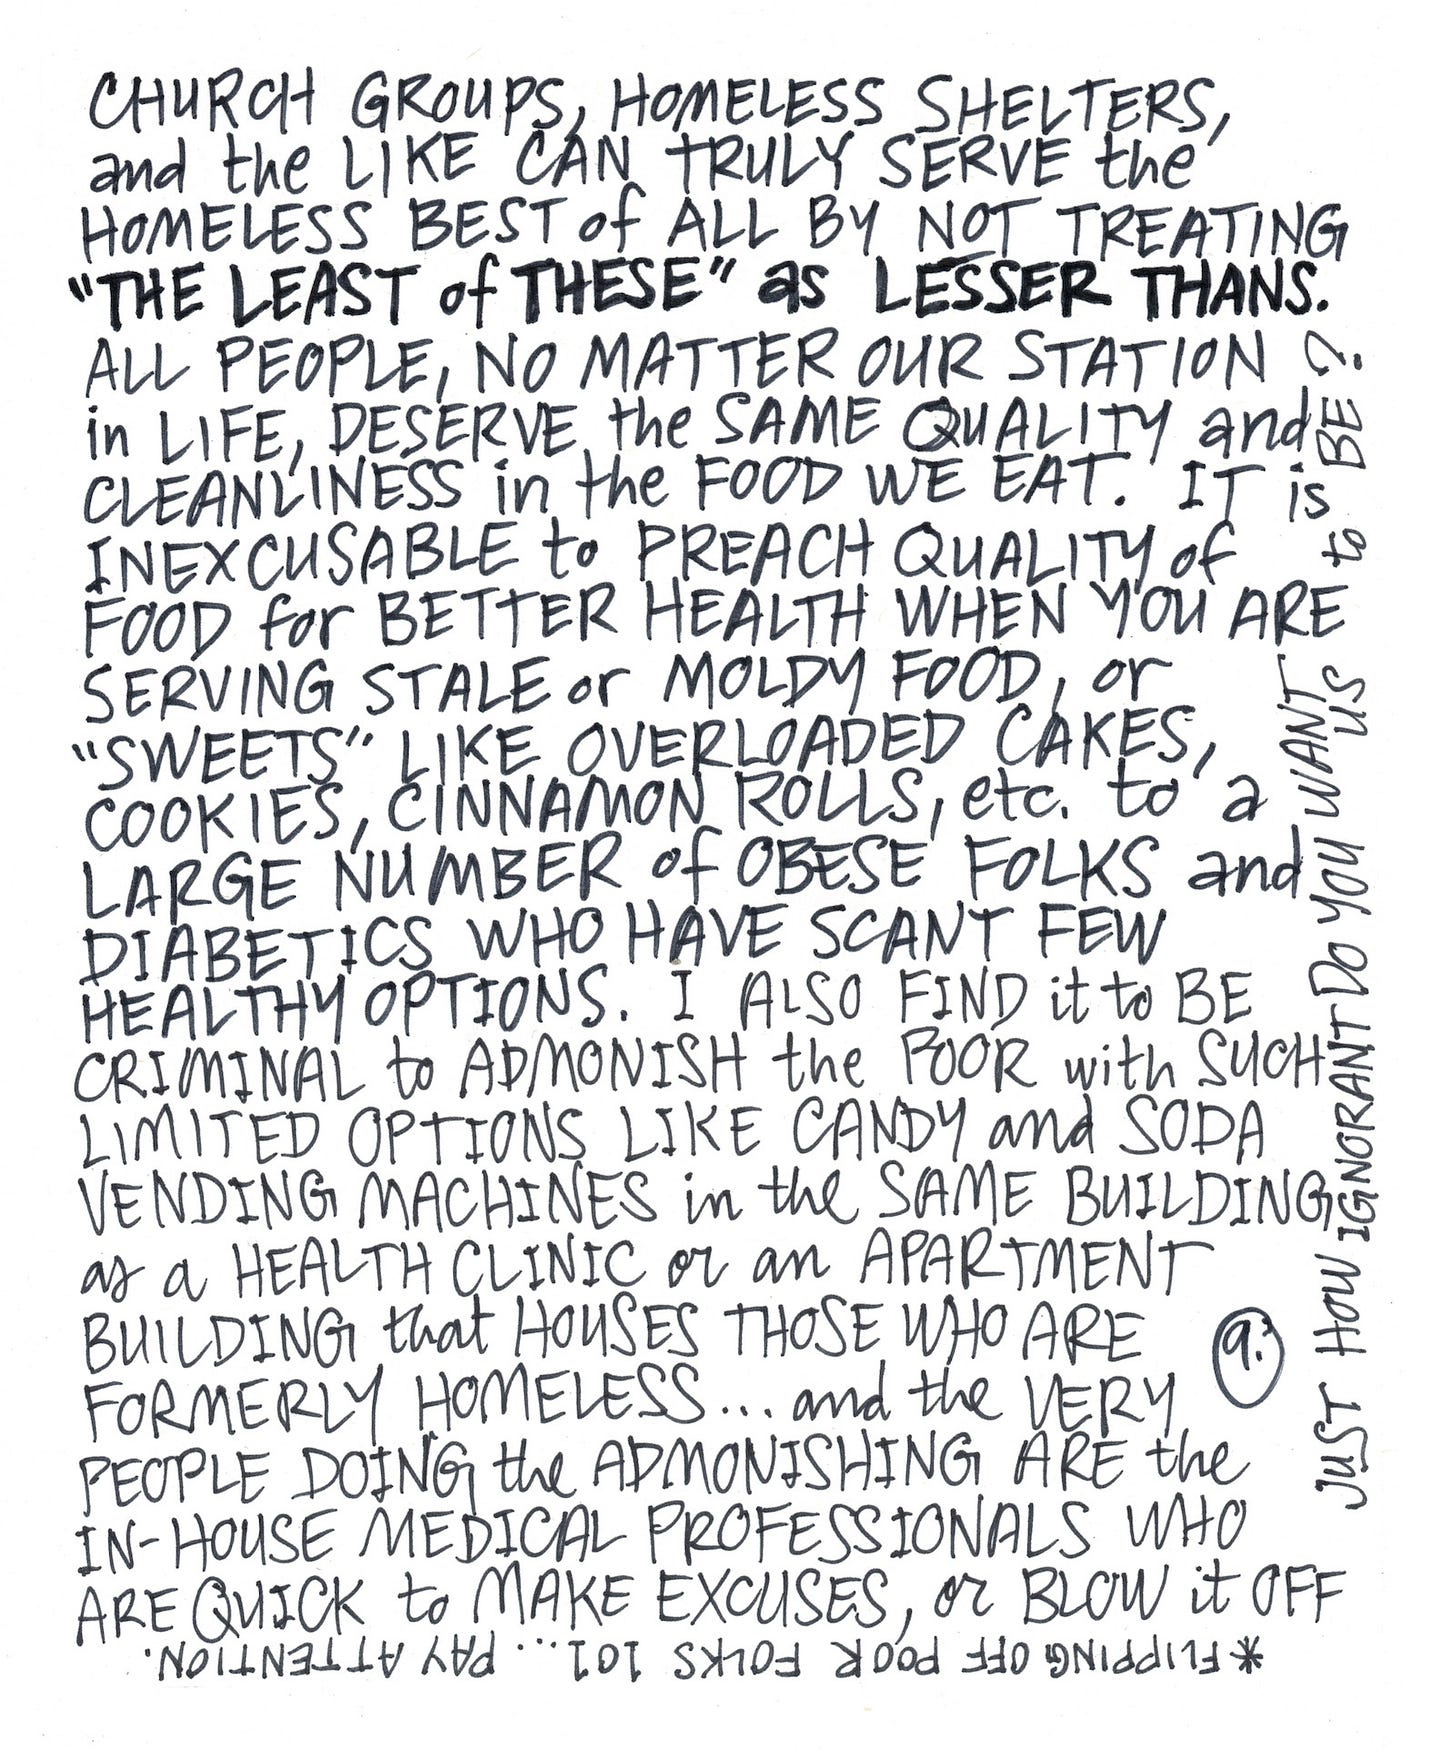 CHURCH GROUPS, HOMELESS SHELTERS,
and the LIKE CAN TRULY SERVE the
HOMELESS BEST of ALL BY NOT TREATING
"THE LEAST of THESE" as LESSER THANS.
ALL PEOPLE, NO MATTER OUR STATION
in LIFE, DESERVE the SAME QUALITY and
CLEANLINESS in the FOOD WE EAT. IT is
INEXCUSABLE to PREACH QUALITY of
FOOD for BETTER HEALTH WHEN YOU ARE
SERVING STALE or MOLDY FOOD, or
"SWEETS" LIKE OVERLOADED CAKES,
COOKIES, CINNAMON ROLLS, etc. to a
LARGE NUMBER of OBESE FOLKS and
DIABETICS WHO HAVE SCANT FEW
HEALTHY OPTIONS. I ALSO FIND it to BE
CRIMINAL to ADMONISH the POOR with SUCH
LIMITED OPTIONS LIKE CANDY and SODA
VENDING MACHINES in the SAME BUILDING
as a HEALTH CLINIC or an APARTMENT
BUILDING that HOUSES THOSE WHO ARE
FORMERLY HOMELESS... and the VERY
PEOPLE DOING the ADMONISHING ARE the
IN-HOUSE MEDICAL PROFESSIONALS WHO
ARE QUICK to MAKE EXCUSES, or BLOW it OFF
9.
JUST HOW IGNORANT DO YOU WANT US to BE?
*FLIPPING OFF POOR FOLKS 101... PAY ATTENTION.